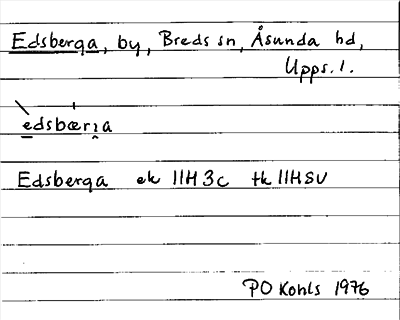 Edsberga, by, Breds sn, Åsunda hd,
Upps. l.
edsbærıa
Edsberga ek 11H 3c tk 11HSV
PO Kohls 1976